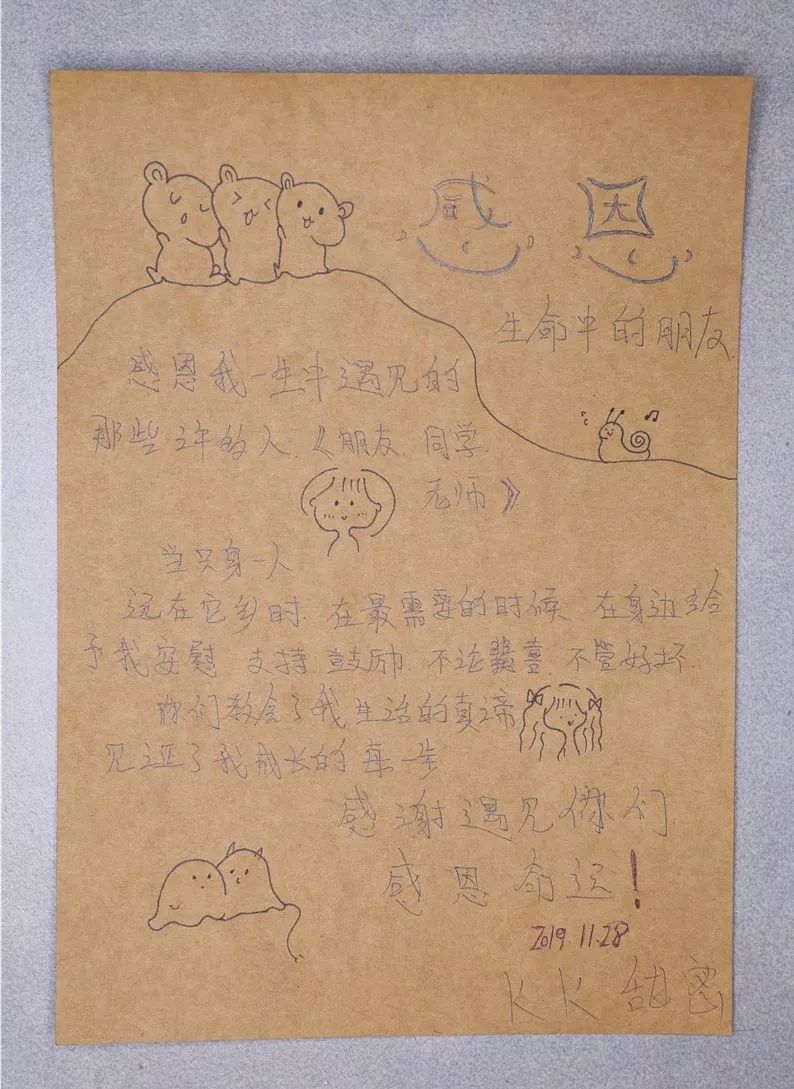 感恩
生命中的朋友
感恩我一生中遇见的
那些许的人《朋友.同学.
老师》
当只身一人
远在它乡时.在最需要的时候 在身边给
予我安慰 支持.鼓励.不论 喜.不管好坏.
你们教会了我生活的真谛
见证了我成长的每一步
感谢遇见你们.
感恩命运!
2019.11.28
KK甜密